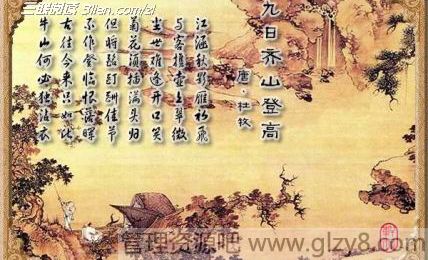 三联阅读 3lian.com/zl
九日齐山登高
唐·杜牧
江涵秋影雁初飞
与客携壶上翠微
尘世难逢开口笑
菊花须插满头归
但将酩酊酬佳节
不作登临恨落晖
古往今来只如此
牛山何必独沾衣
管理资源吧 www.glzy8.com